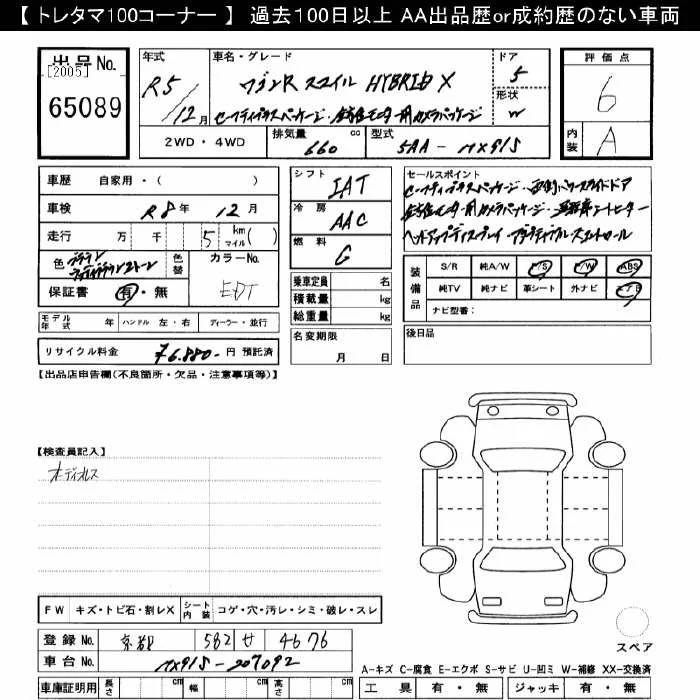 【 トレタマ100コーナー 】 過去100日以上 AA出品歴or成約歴のない車両
出品 No.
[2005]
65089
年式
R5/12月
車名・グレード
ワゴンR スマイル HYBRID X
セーフティプラスパッケージ・全方位モニター用カメラパッケージ
ドア
5
形状
W
評価点
6
内装
A
2WD・4WD
排気量 660 cc
型式 5AA-MX91S
車歴 自家用・( )
車検 R8年 12月
走行 万 千 5 km マイル( )
色
色替
カラーNo.
EDT
保証書 有・無
モデル年式 年 ハンドル 左・右 ディーラー・並行
リサイクル料金 ¥6,880- 円 預託済
シフト IAT
冷房 AAC
燃料 G
乗車定員 名
積載量 kg
総重量 kg
名変期限
月 日
セールスポイント
セーフティプラスパッケージ・両側パワースライドドア
全方位モニター用カメラパッケージ・運転席シートヒーター
ヘッドアップディスプレイ アダプティブクルーズコントロール
装備品
S/R 純A/W P/S P/W ABS
純TV 純ナビ 革シート 外ナビ エアB
ナビ型番：
後日品
【出品店申告欄(不良箇所・欠品・注意事項等)】
【検査員記入】
オーディオレス
FW キズ・トビ石・割レX シート内装 コゲ・穴・汚レ・シミ・破レ・スレ
登録 No. 京都 582 せ 4676
車台 No. MX91S-207092
車庫証明用 長さ cm 幅 cm 高さ cm
スペア
A-キズ C-腐食 E-エクボ S-サビ U-凹ミ W-補修 XX-交換済
工具 有・無 ジャッキ 有・無